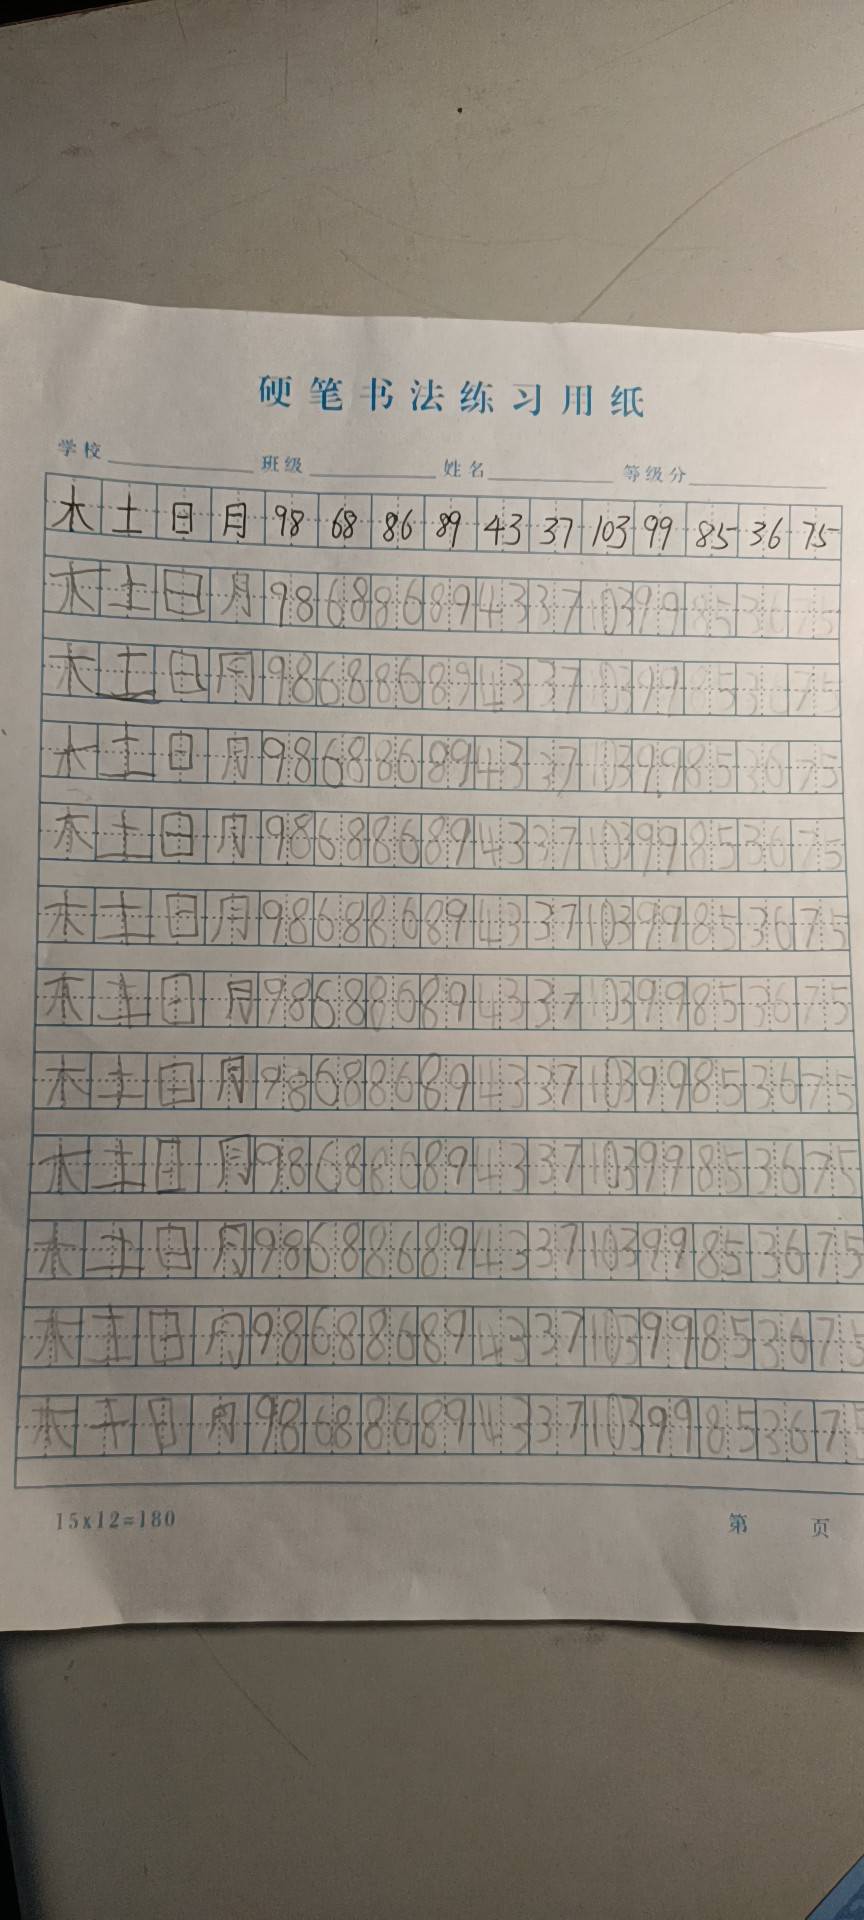 硬笔书法练习用纸
学校 班级 姓名 等级分
木 土 日 月 98 68 86 89 43 37 103 99 85 36 75
木 土 日 月 98 68 86 89 43 37 103 99 85 36 75
木 土 日 月 98 68 86 89 43 37 103 99 85 36 75
木 土 日 月 98 68 86 89 43 37 103 99 85 36 75
木 土 日 月 98 68 86 89 43 37 103 99 85 36 75
木 土 日 月 98 68 86 89 43 37 103 99 85 36 75
木 土 日 月 98 68 86 89 43 37 103 99 85 36 75
木 土 日 月 98 68 86 89 43 37 103 99 85 36 75
木 土 日 月 98 68 86 89 43 37 103 99 85 36 75
木 土 日 月 98 68 86 89 43 37 103 99 85 36 75
木 土 日 月 98 68 86 89 43 37 103 99 85 36 75
木 土 日 月 98 68 86 89 43 37 103 99 85 36 75
15x12=180 第 页